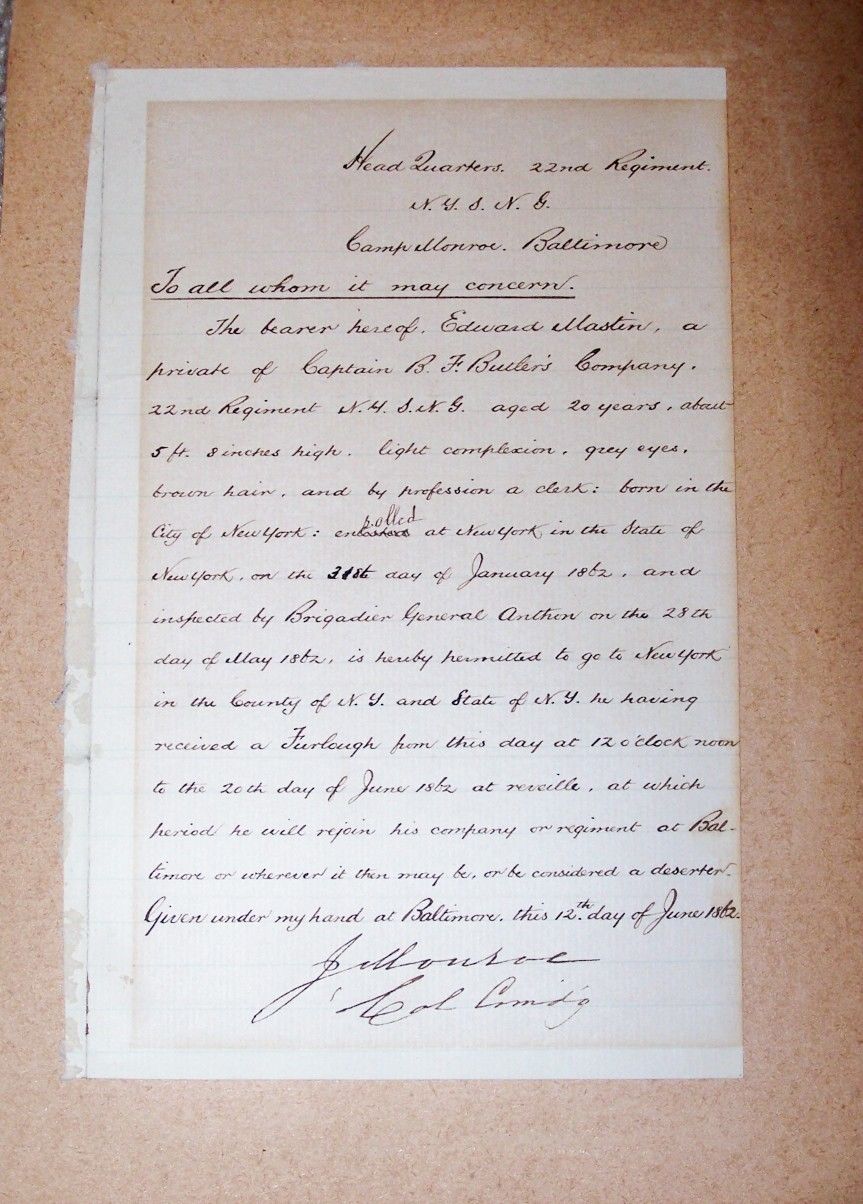 Head Quarters. 22nd Regiment.
N. Y. S. N. G.
Camp Monroe. Baltimore
To all whom it may concern.
The bearer hereof, Edward Mastin, a
private of Captain B. F. Butler's Company,
22nd Regiment N. Y. S. N. G. aged 20 years, about
5 ft. 8 inches high. light complexion, grey eyes,
brown hair, and by profession a clerk: born in the
rolled
City of New York: en at New York in the State of
New York, on the 31st day of January 1862, and
inspected by Brigadier General Anthon on the 28th
day of May 1862, is hereby permitted to go to New York
in the County of N. Y. and State of N. Y. he having
received a Furlough from this day at 12 o'clock noon
to the 20th day of June 1862 at reveille, at which
period he will rejoin his company or regiment at Bal-
timore or wherever it then may be, or be considered a deserter.
Given under my hand at Baltimore, this 12th day of June 1862.
J Monroe
Col Cmd'g